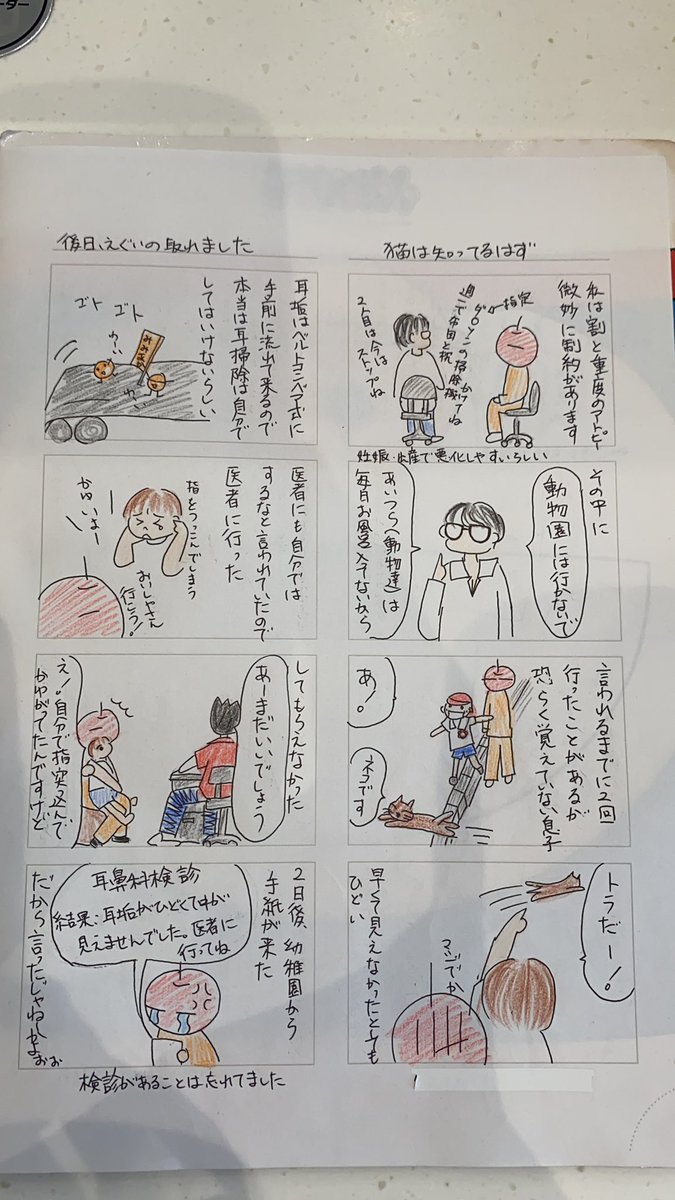 ーダー
猫は知ってるはず
私は割と重度のアトピー
微妙に制約があります
指定
ダ○ソンの掃除機かけてね
週一で布団と枕
2人目は今は
ストップね
妊娠・出産で悪化しやすいらしい
その中に
動物園には行かないで
あいつら(動物達)は
毎日お風呂入ってないから
言われるまでに2回
行ったことがあるが
恐らく覚えていない息子
あ!
ネコです
トラだー!
マジでか
早くて見えなかったとしても
ひどい
後日、えぐいの取れました
耳垢はベルトコンベア式に
手前に流れて来るので
本当は耳掃除は自分で
してはいけないらしい
ゴト
ゴト
わー
みみあか
わー
医者にも自分では
するなと言われていたので
医者に行った
指をつっこんでしまう
かゆいよー
おいしゃさん
行こう!
してもらえなかった
あーまだいいでしょう
え!自分で指突っ込んで
かゆがってたんですけど
2日後、幼稚園から
手紙が来た
耳鼻科検診
結果:耳垢がひどくて中が
見えませんでした。医者に
行ってね
だから言ったじゃねえかよぉぉ
検診があることは忘れてました